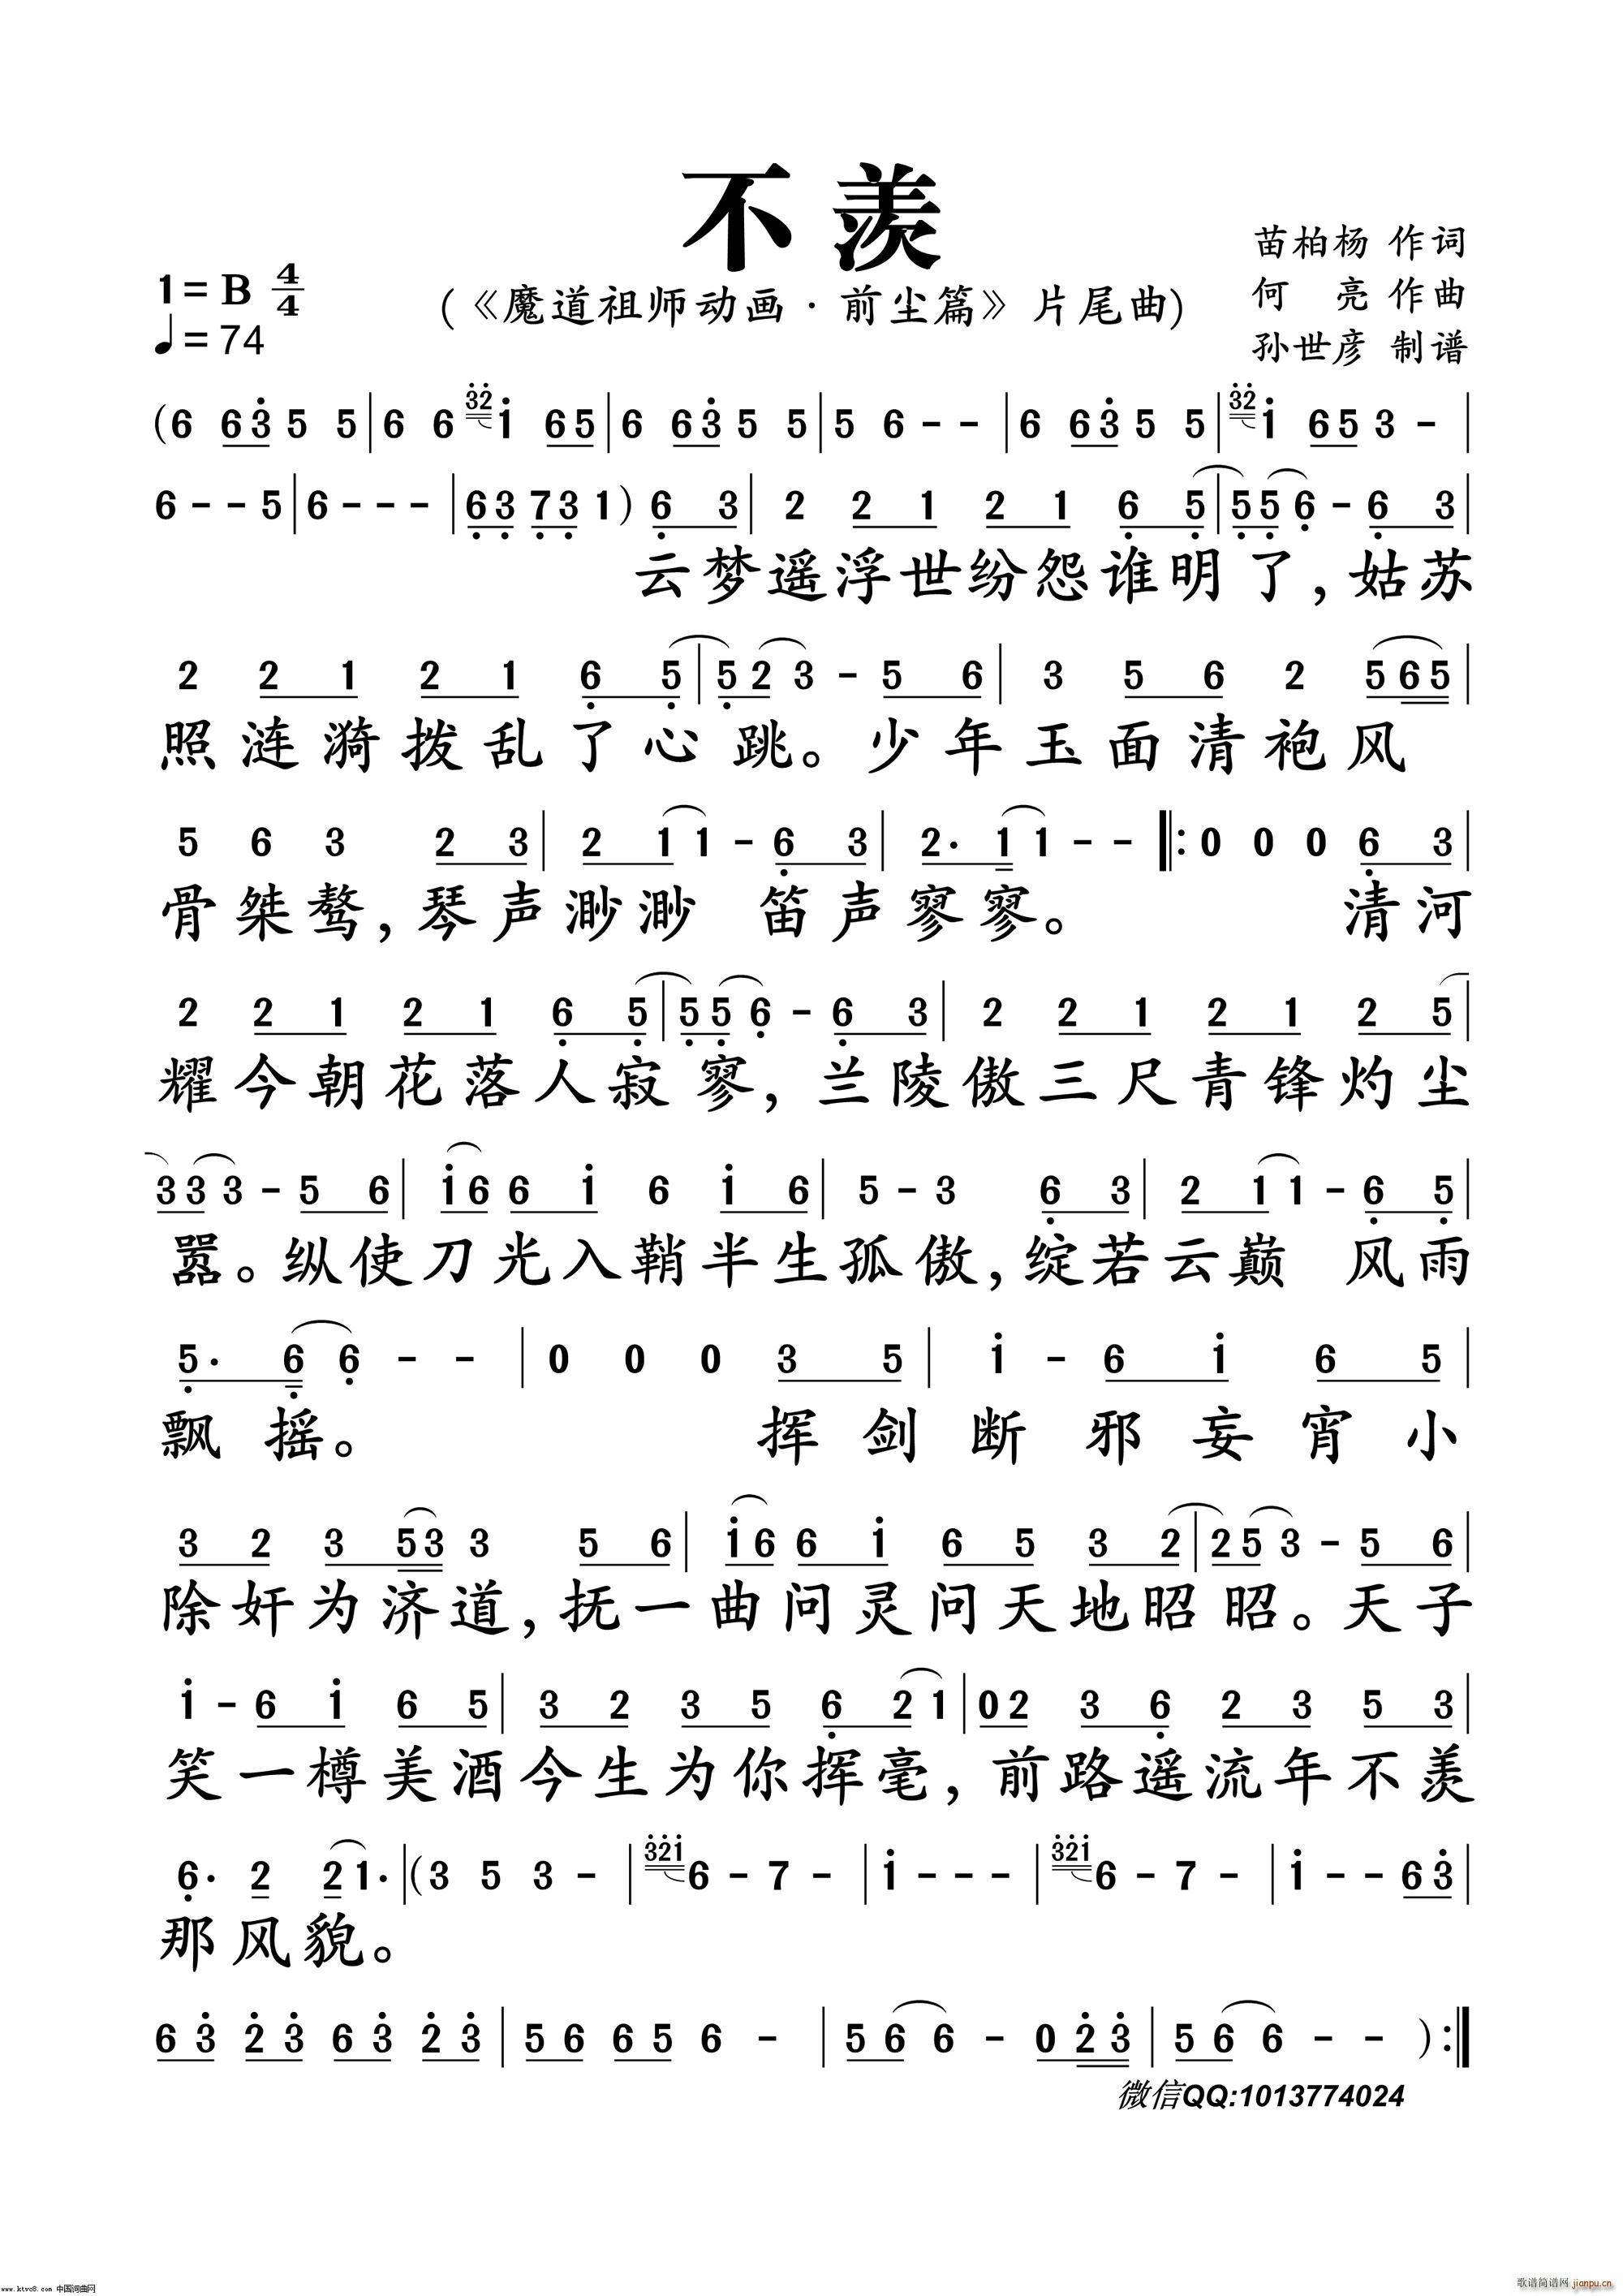 不羡
苗柏杨 作词
1=B 4/4
(《魔道祖师动画·前尘篇》片尾曲)
何 亮 作曲
♩=74
孙世彦 制谱
(6 6 3̇ 5 5 | 6 6 3̇2̇ 1̇ 6 5 | 6 6 3̇ 5 5 | 5 6 - - | 6 6 3̇ 5 5 | 3̇2̇ 1̇ 6 5 3 - |
6 - - 5 | 6 - - - | 6̣ 3̣ 7̣ 3̣ 1) 6̣ 3 | 2 2 1 2 1 6̣ 5̣ | 5̣ 5̣ 6̣ - 6̣ 3 |
云梦遥浮世纷怨谁明了，姑苏
2 2 1 2 1 6̣ 5̣ | 5̣ 2 3 - 5 6 | 3 5 6 2 5 6 5 |
照涟漪拨乱了心跳。少年玉面清袍风
5 6 3 2 3 | 2 1 1 - 6̣ 3 | 2· 1 1 - - ‖: 0 0 0 6̣ 3 |
骨桀骜，琴声渺渺 笛声寥寥。 清河
2 2 1 2 1 6̣ 5̣ | 5̣ 5̣ 6̣ - 6̣ 3 | 2 2 1 2 1 2 5 |
耀今朝花落人寂寥，兰陵傲三尺青锋灼尘
3 3 3 - 5 6 | 1̇ 6 6 1̇ 6 1̇ 6 | 5 - 3 6̣ 3 | 2 1 1 - 6̣ 5̣ |
嚣。纵使刀光入鞘半生孤傲，绽若云巅 风雨
5̣· 6̣ 6̣ - - | 0 0 0 3 5 | 1̇ - 6 1̇ 6 5 |
飘摇。 挥剑断邪妄宵小
3 2 3 5 3 3 5 6 | 1̇ 6 6 1̇ 6 5 3 2 | 2 5 3 - 5 6 |
除奸为济道，抚一曲问灵问天地昭昭。天子
1̇ - 6 1̇ 6 5 | 3 2 3 5 6̣ 2 1 | 0 2 3 6̣ 2 3 5 3 |
笑一樽美酒今生为你挥毫，前路遥流年不羡
6̣· 2 2 1· | (3 5 3 - | 3̇2̇1̇ 6 - 7 - | 1̇ - - - | 3̇2̇1̇ 6 - 7 - | 1̇ - - 6 3̇ |
那风貌。
6 3̇ 2̇ 3̇ 6 3̇ 2̇ 3̇ | 5 6 6 5 6 - | 5 6 6 - 0 2̇ 3̇ | 5 6 6 - - ) :‖
微信QQ:1013774024
www.ktvc8.com 中国词曲网
歌谱简谱网 jianpu.cn